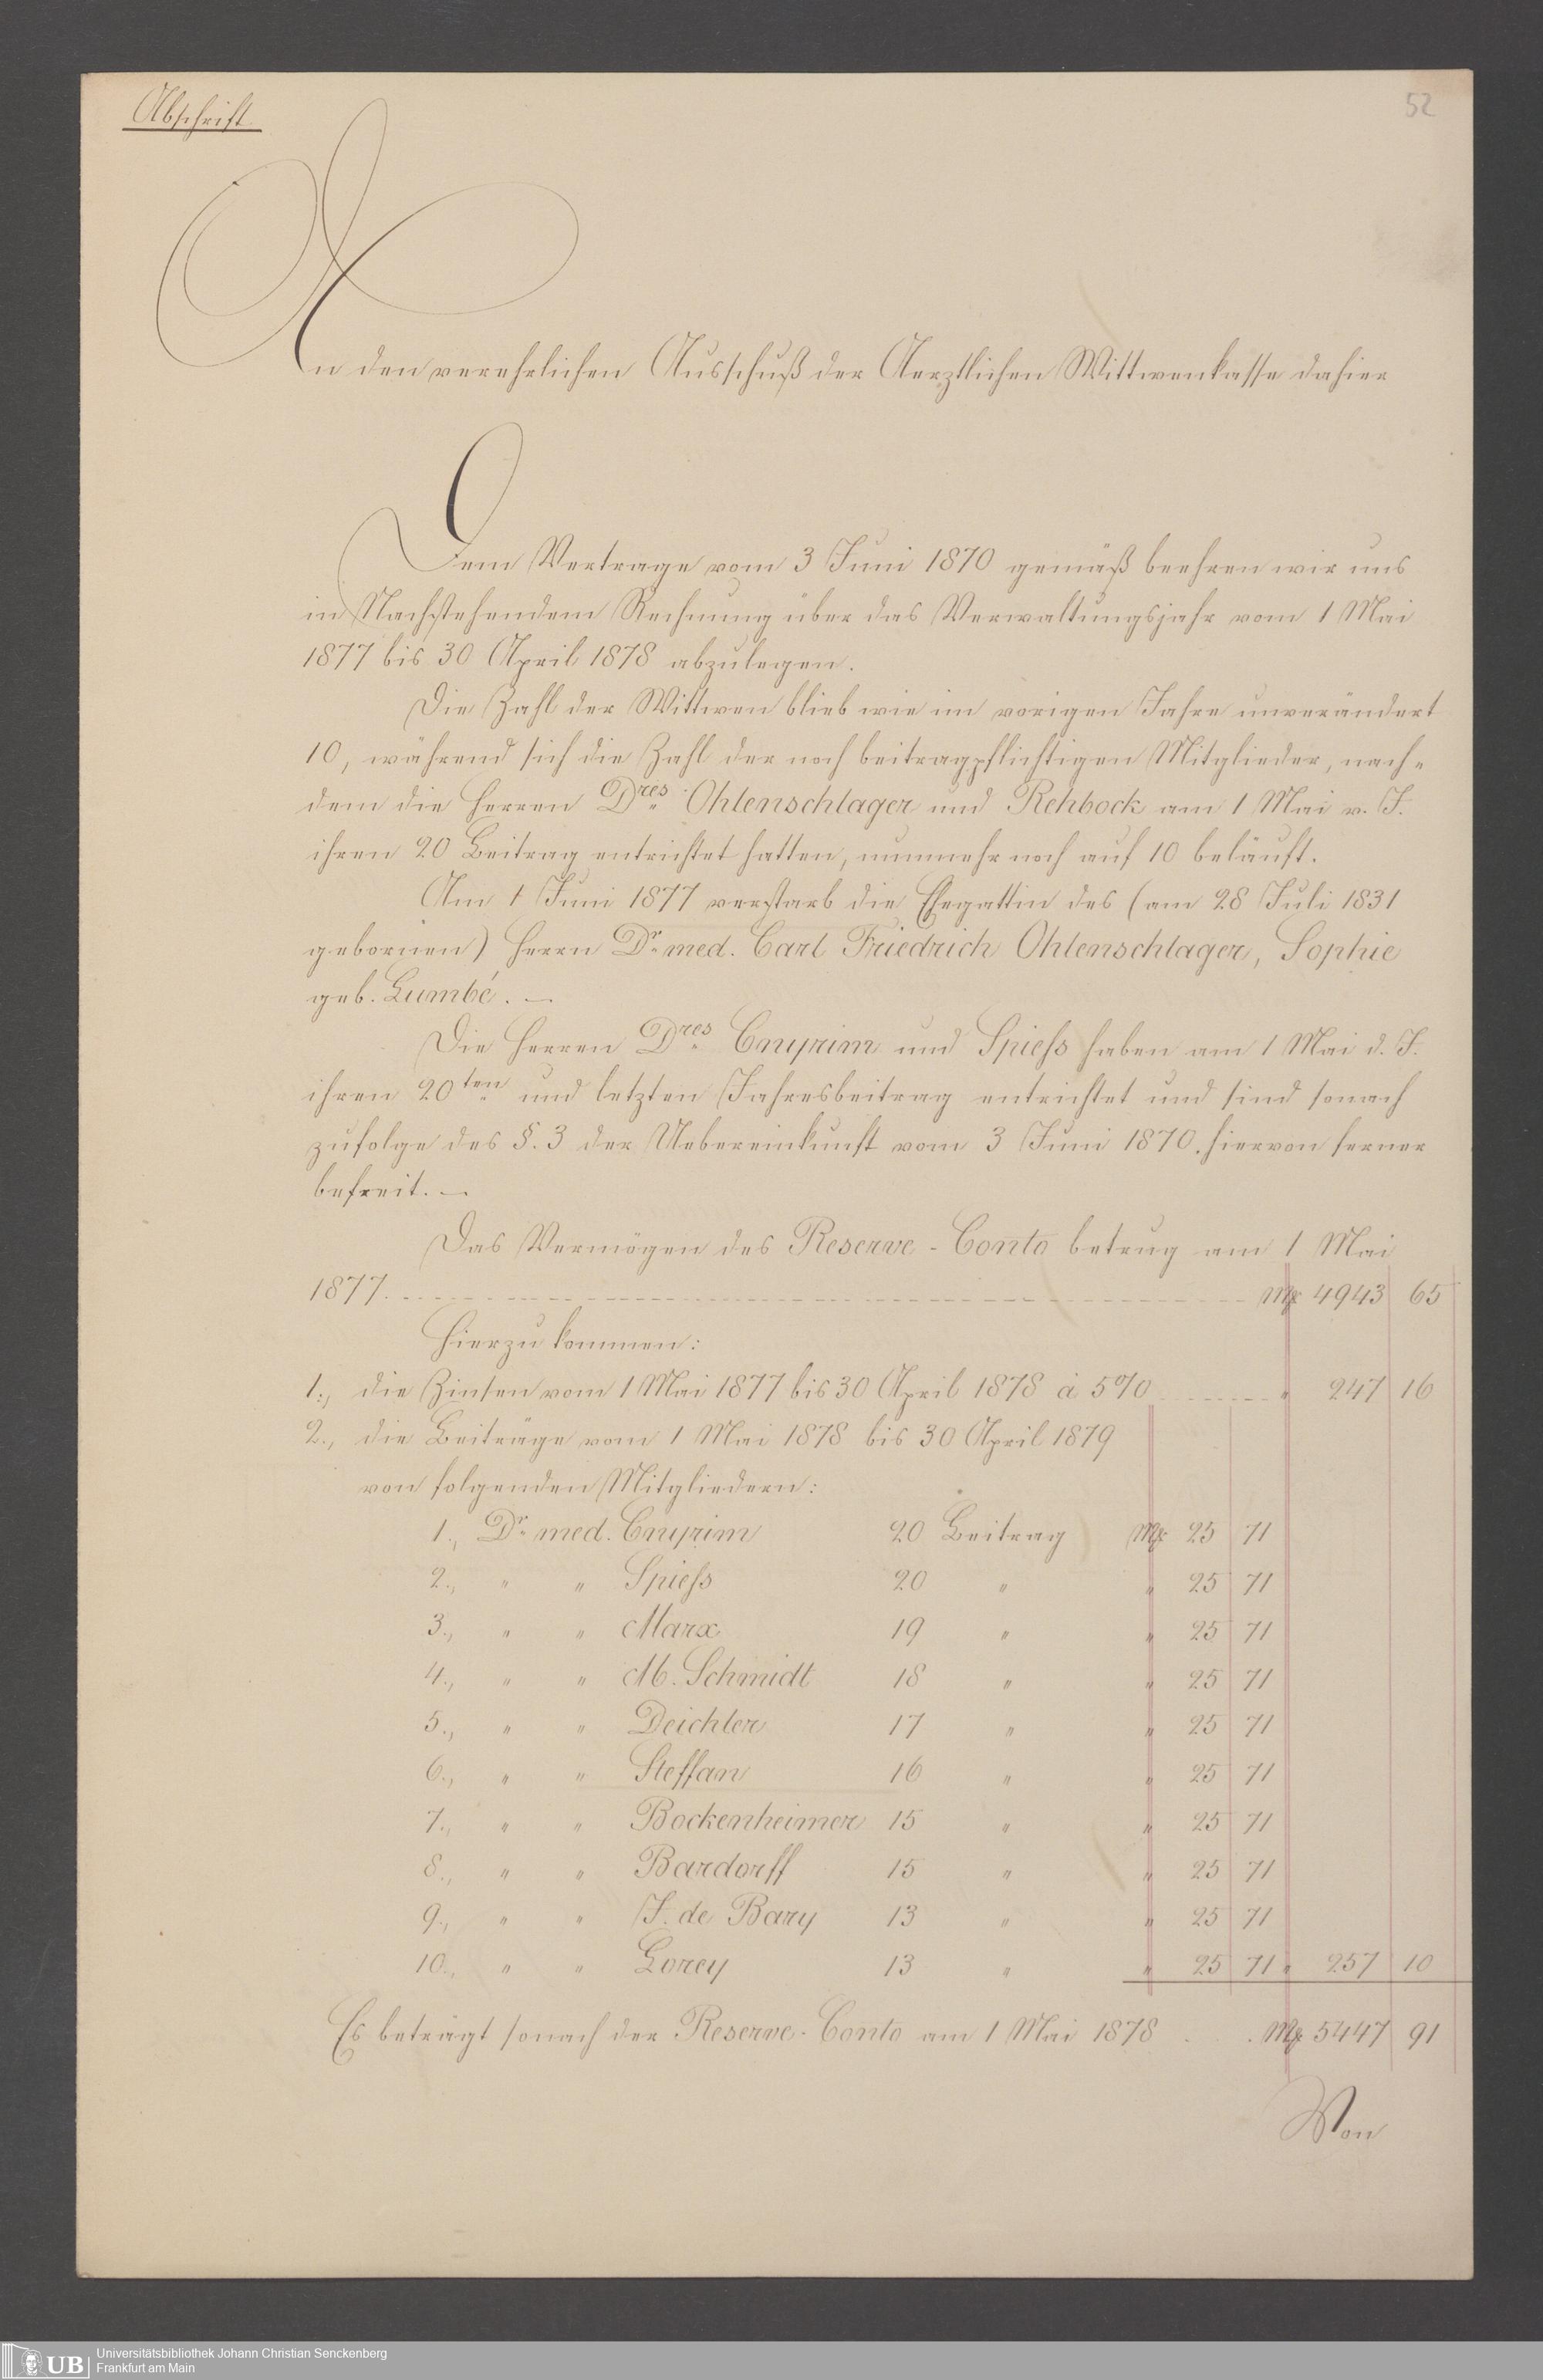 Abschrift
52
An den verehrlichen Ausschuß der Aerztlichen Wittwenkasse dahier
Dem Vertrage vom 3 Juni 1870 gemäß beehren wir uns
in Nachstehendem Rechnung über das Verwaltungsjahr vom 1 Mai
1877 bis 30 April 1878 abzulegen.
Die Zahl der Wittwen blieb wie im vorigen Jahre unverändert
10, während sich die Zahl der noch beitragpflichtigen Mitglieder, nach-
dem die Herren Dres Ohlenschlager und Rehbock am 1 Mai v. J.
ihren 20 Beitrag entrichtet hatten, nunmehr noch auf 10 beläuft.
Am 1 Juni 1877 verstarb die Ehegattin des (am 28 Juli 1831
gebornen) Herrn Dr med. Carl Friedrich Ohlenschlager, Sophie
geb. Lumbé. –
Die Herren Dres Cnyrim und Spieß haben am 1 Mai d. J.
ihren 20ten und letzten Jahresbeitrag entrichtet und sind sonach
zufolge des §. 3 der Uebereinkunft vom 3 Juni 1870. hiervon ferner
befreit. –
Das Vermögen des Reserve-Conto betrug am 1 Mai
1877. Mk 4943 65
Hierzu kommen:
1., die Zinsen vom 1 Mai 1877 bis 30 April 1878 à 5% " 247 16
2., die Beiträge vom 1 Mai 1878 bis 30 April 1879
von folgenden Mitgliedern:
1., Dr med. Cnyrim 20 Beitrag Mk 25 71
2., " " Spieß 20 " " 25 71
3., " " Marx 19 " " 25 71
4., " " M. Schmidt 18 " " 25 71
5., " " Deichler 17 " " 25 71
6., " " Steffan 16 " " 25 71
7., " " Bockenheimer 15 " " 25 71
8., " " Bardorff 15 " " 25 71
9., " " J. de Bary 13 " " 25 71
10., " " Lorey 13 " " 25 71 " 257 10
Es beträgt sonach der Reserve-Conto am 1 Mai 1878 . . Mk 5447 91
Von
UB
Universitätsbibliothek Johann Christian Senckenberg
Frankfurt am Main